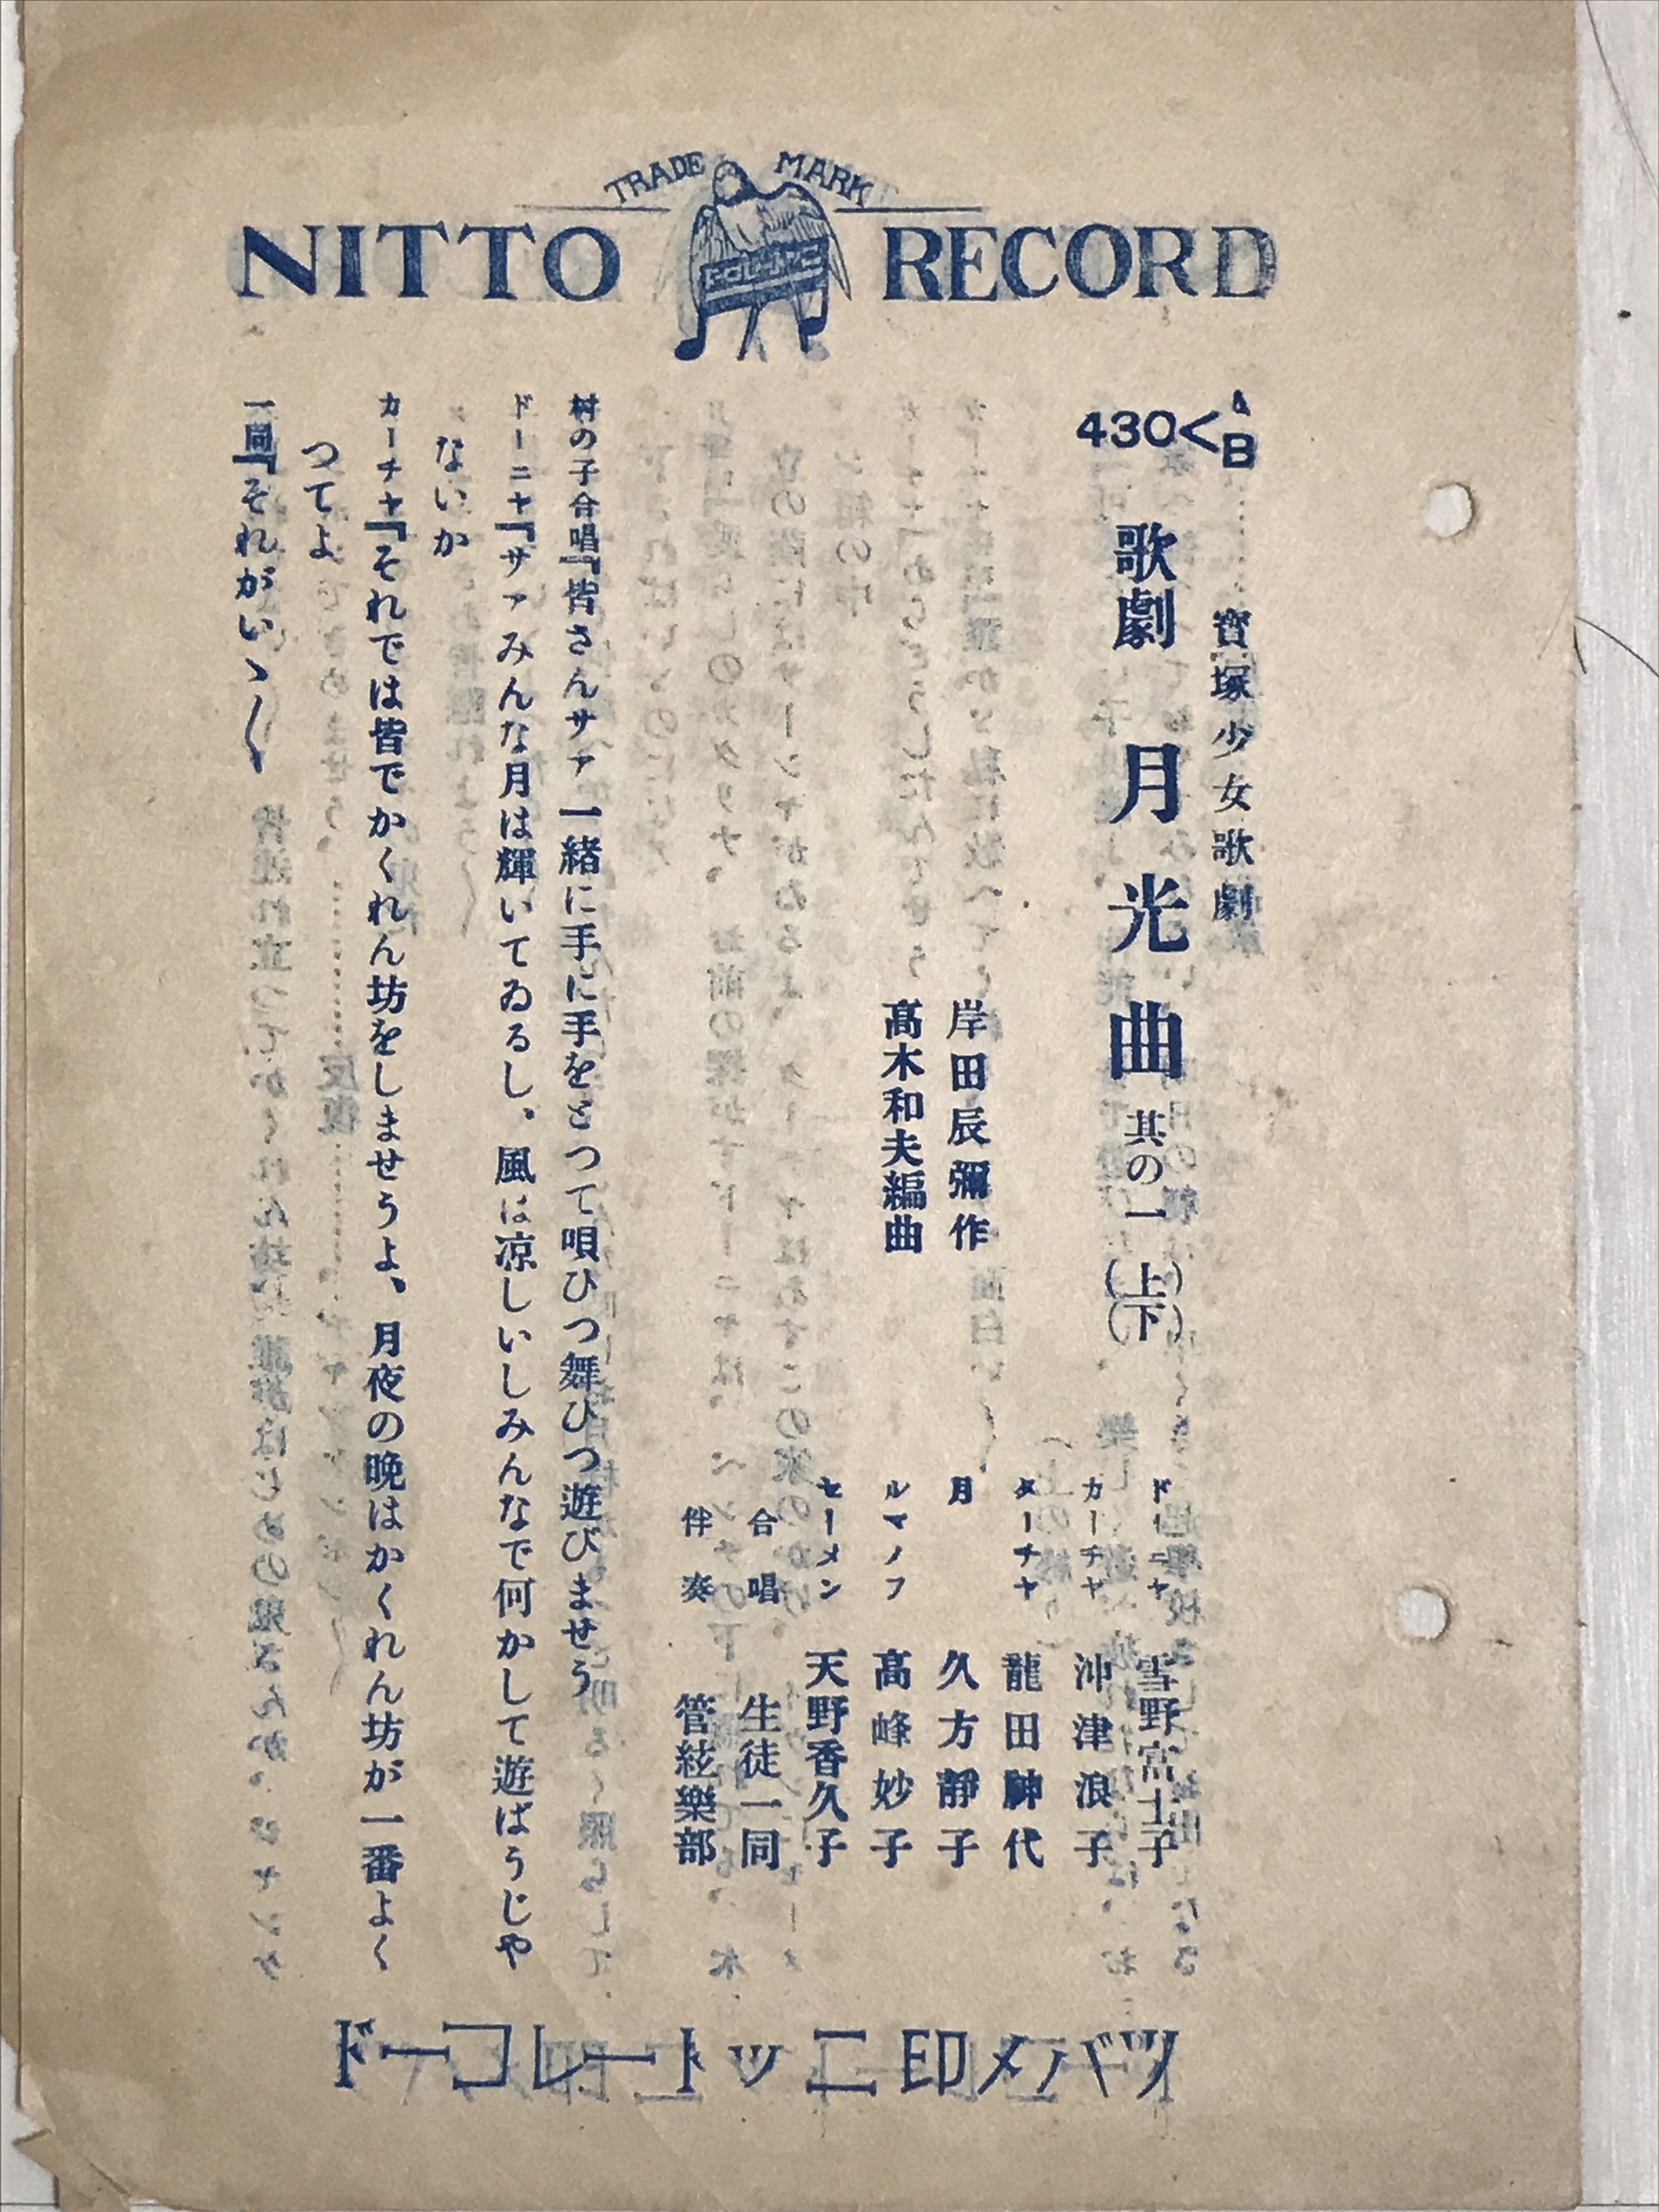 TRADE MARK
NITTO RECORD
430<A B
寶塚少女歌劇
歌劇 月光曲 其の一 (上)(下)
岸田辰彌作
髙木和夫編曲
ドーニヤ 雪野富士子
カーチヤ 沖津浪子
ターチヤ 龍田神代
月 久方靜子
ルマノフ 高峰妙子
セーメン 天野香久子
合唱 生徒一同
伴奏 管絃樂部
村の子合唱『皆さんサァ一緒に手に手をとつて唄ひつ舞ひつ遊びませう
ドーニヤ『サァみんな月は輝いてゐるし、風は凉しいしみんなで何かして遊ばうじや
ないか
カーチャ『それでは皆でかくれん坊をしませうよ、月夜の晩はかくれん坊が一番よく
つてよ
一同『それがいゝ〱
ドーコレートッニ印メバツ